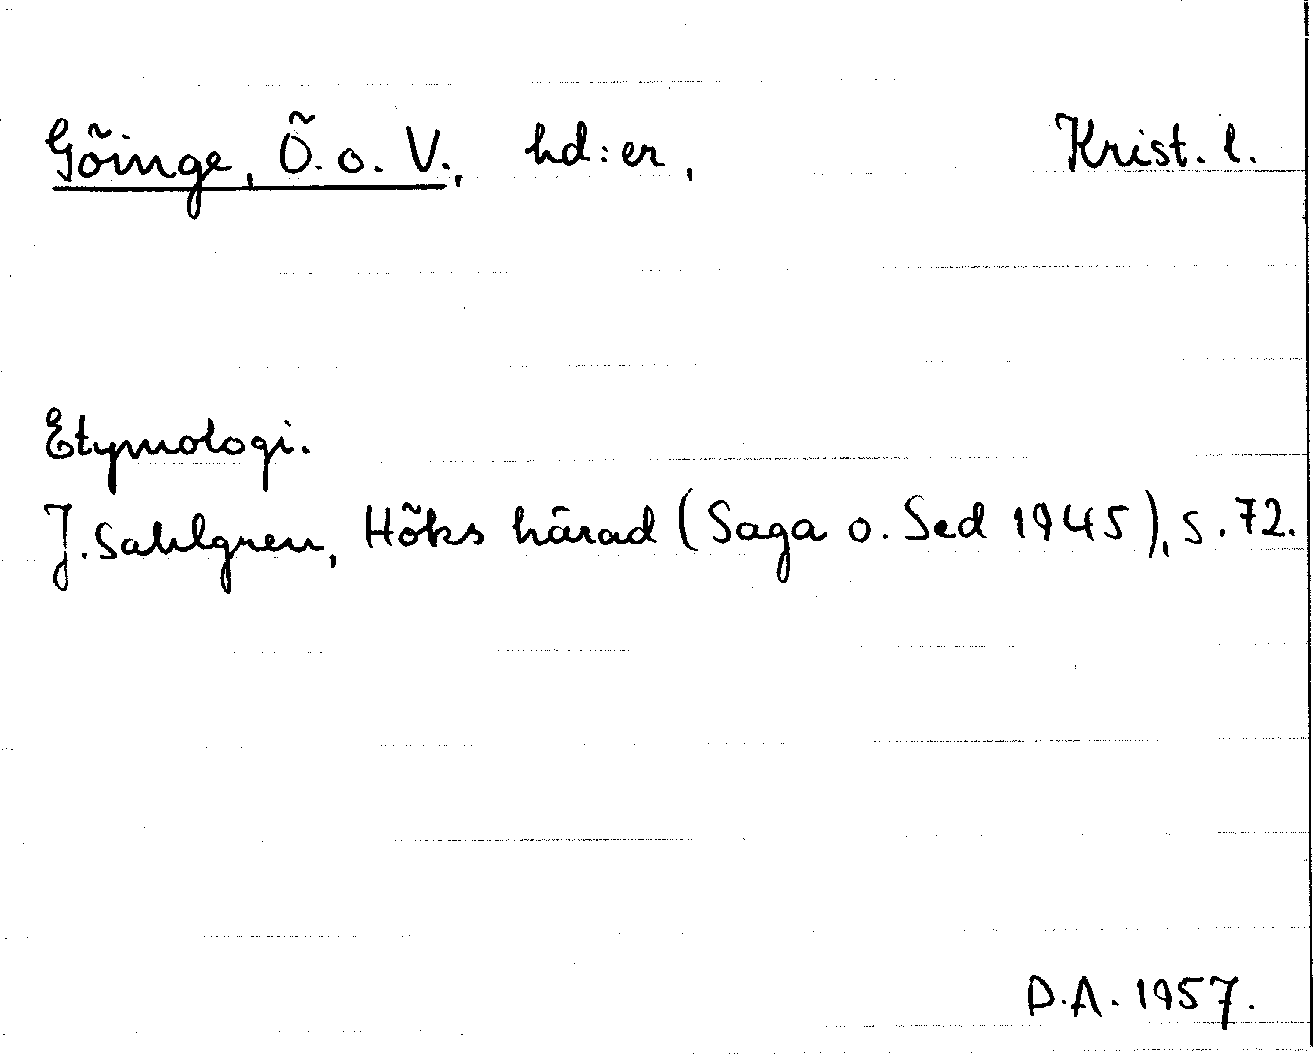 Göinge, Ö. o. V., hd:er, Krist. l.
Etymologi.
J. Sahlgren, Höks härad (Saga o. Sed 1945), s. 72.
D.A. 1957.